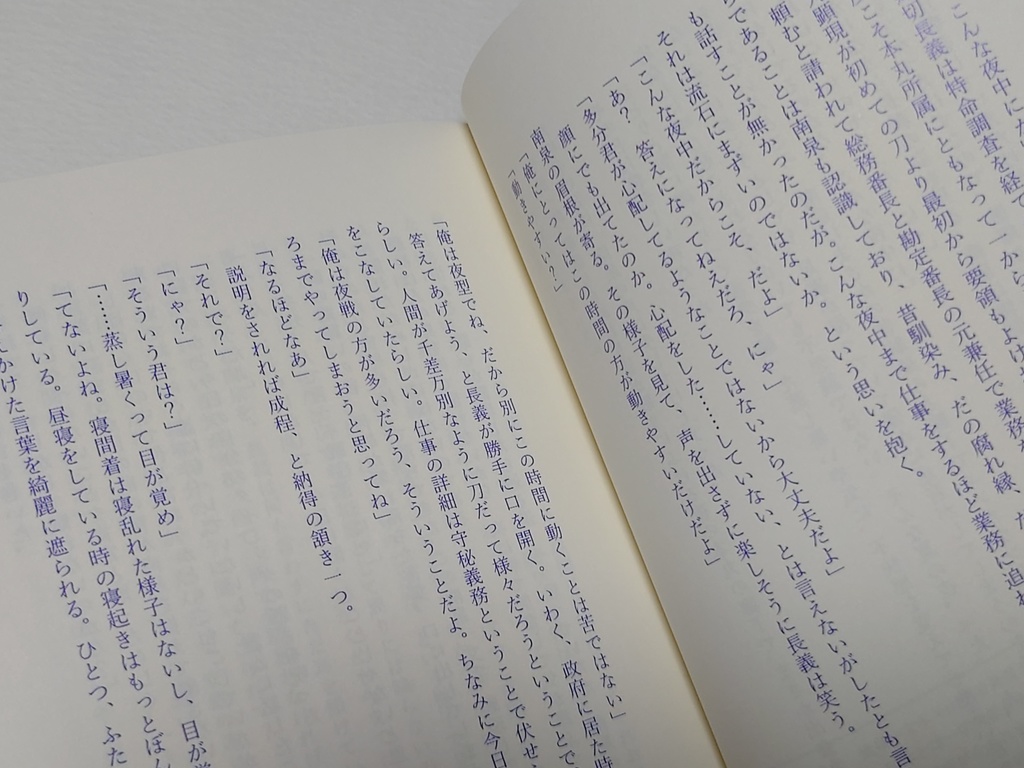 こんな夜中に
切長義は特命調査を経て
こそ本丸所属にともなって一から
顕現が初めての刀より最初から要領もよけ
頼むと請われて総務番長と勘定番長の元兼任で業務
であることは南泉も認識しており、昔馴染み、だの腐れ縁、
も話すことが無かったのだが。こんな夜中まで仕事をするほど業務に追
それは流石にまずいのではないか。という思いを抱く。
「こんな夜中だからこそ、だよ」
「あ？　答えになってねえだろ、にゃ」
「多分君が心配してるようなことではないから大丈夫だよ」
顔にでも出てたのか。心配をした……していない、とは言えないがしたとも言
南泉の眉根が寄る。その様子を見て、声を出さずに楽しそうに長義は笑う。
「俺にとってはこの時間の方が動きやすいだけだよ」
「動きやすい？」
「俺は夜型でね、だから別にこの時間に動くことは苦ではない」
答えてあげよう、と長義が勝手に口を開く。いわく、政府に居た時
らしい。人間が千差万別なように刀だって様々だろうということで
をこなしていたらしい。仕事の詳細は守秘義務ということで伏せ
「俺は夜戦の方が多いだろう、そういうことだよ。ちなみに今日
ろまでやってしまおうと思ってね」
「なるほどなあ」
説明をされれば成程、と納得の頷き一つ。
「それで？」
「にゃ？」
「そういう君は？」
「……蒸し暑くって目が覚め」
「てないよね。寝間着は寝乱れた様子はないし、目が
りしている。昼寝をしている時の寝起きはもっとぼん
かけた言葉を綺麗に遮られる。ひとつ、ふた